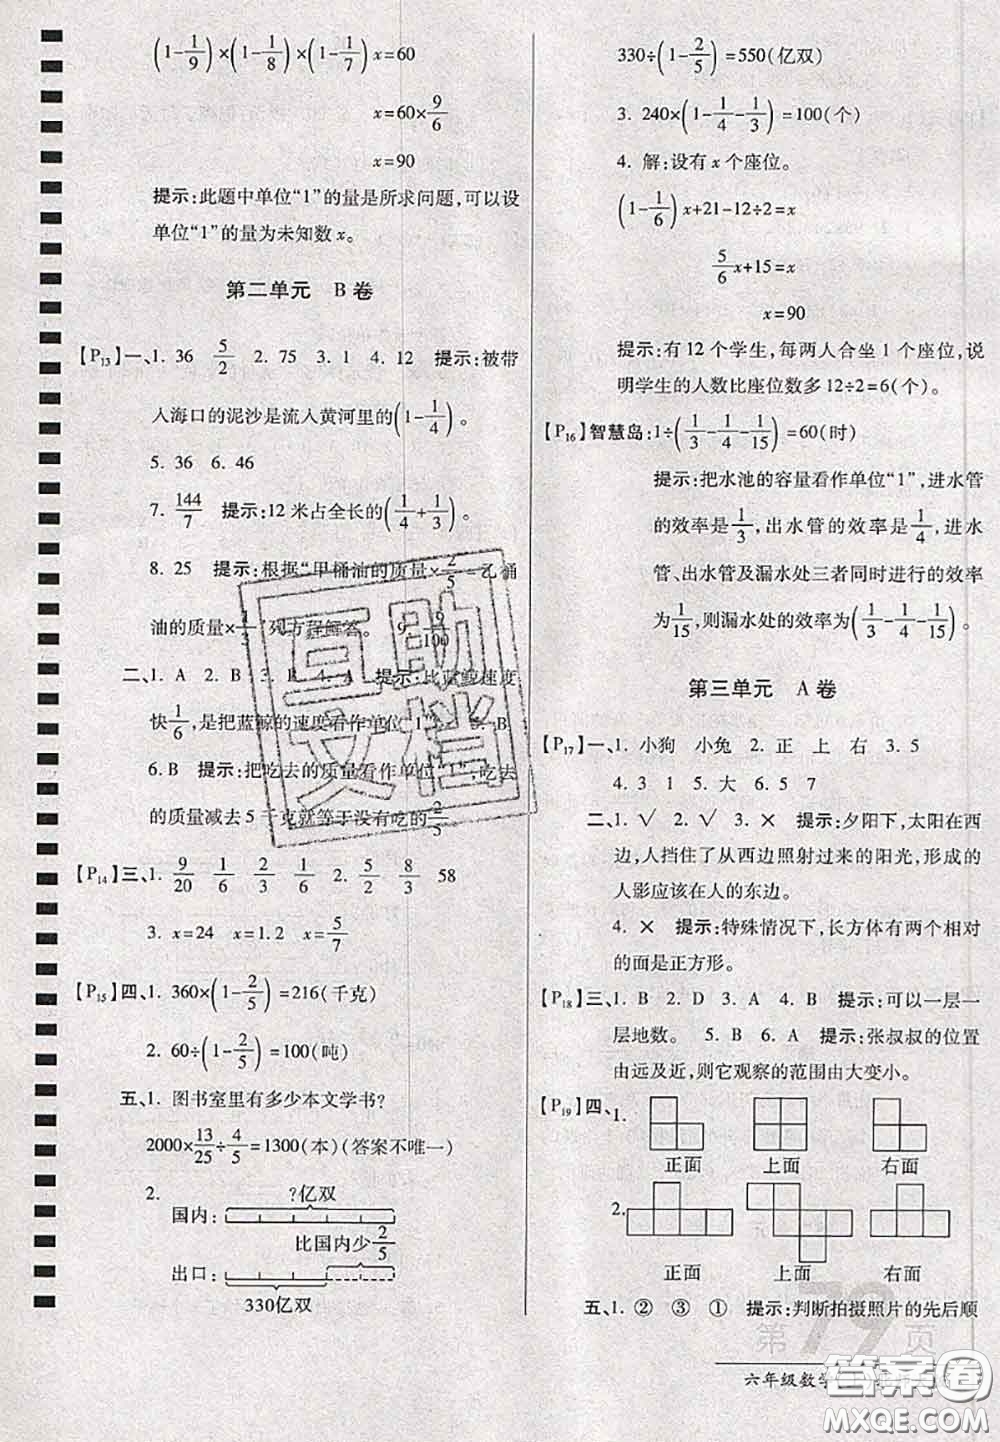 (1-1/9)×(1-1/8)×(1-1/7)x=60
x=60×9/6
x=90
提示:此题中单位“1”的量是所求问题,可以设
单位“1”的量为未知数 x。
第二单元 B 卷
【P13】一、1. 36 5/2 2. 75 3. 1 4. 12 提示:被带
入海口的泥沙是流入黄河里的(1-1/4)。
5. 36 6. 46
7. 144/7 提示:12 米占全长的(1/4+1/3)。
8. 25 提示:根据“甲桶油的质量×2/5=乙桶
油的质量×1/3”列方程解答。 9. 9/100
二、1. A 2. A 3. B 4. A 提示:比蓝鲸速度
快1/6,是把蓝鲸的速度看作单位“1”。 5. B
6. B 提示:把吃去的质量看作单位“1”,吃去
的质量减去 5 千克就等于没有吃的2/5
【P14】三、1. 9/20 1/6 1/3 2. 5/2 8/3 58
3. x=24 x=1.2 x=5/7
【P15】四、1. 360×(1-2/5)=216(千克)
2. 60÷(1-2/5)=100(吨)
五、1. 图书室里有多少本文学书?
2000×13/25÷4/5=1300(本)(答案不唯一)
2.
?亿双
国内:
比国内少2/5
出口:
330亿双
330÷(1-2/5)=550(亿双)
3. 240×(1-1/4-1/3)=100(个)
4. 解:设有 x 个座位。
(1-1/6)x+21-12÷2=x
5/6x+15=x
x=90
提示:有 12 个学生,每两人合坐 1 个座位,说
明学生的人数比座位数多 12÷2=6(个)。
【P16】智慧岛:1÷(1/3-1/4-1/15)=60(时)
提示:把水池的容量看作单位“1”,进水管
的效率是1/3,出水管的效率是1/4,进水
管、出水管及漏水处三者同时进行的效率
为1/15,则漏水处的效率为1/3-1/4-1/15。
第三单元 A 卷
【P17】一、1. 小狗 小兔 2. 正 上 右 3. 5
4. 3 1 5. 大 6. 5 7
二、1. √ 2. √ 3. × 提示:夕阳下,太阳在西
边,人挡住了从西边照射过来的阳光,形成的
人影应该在人的东边。
4. × 提示:特殊情况下,长方体有两个相对
的面是正方形。
【P18】三、1. B 2. D 3. A 4. B 提示:可以一层一
层地数。 5. B 6. A 提示:张叔叔的位置
由远及近,则它观察的范围由大变小。
【P19】四、1.
正面 上面 右面
2.
正面 上面 右面
五、1. ② ③ ① 提示:判断拍摄照片的先后顺
第79页
六年级数学
互助文档
答案圈
MXQE.COM